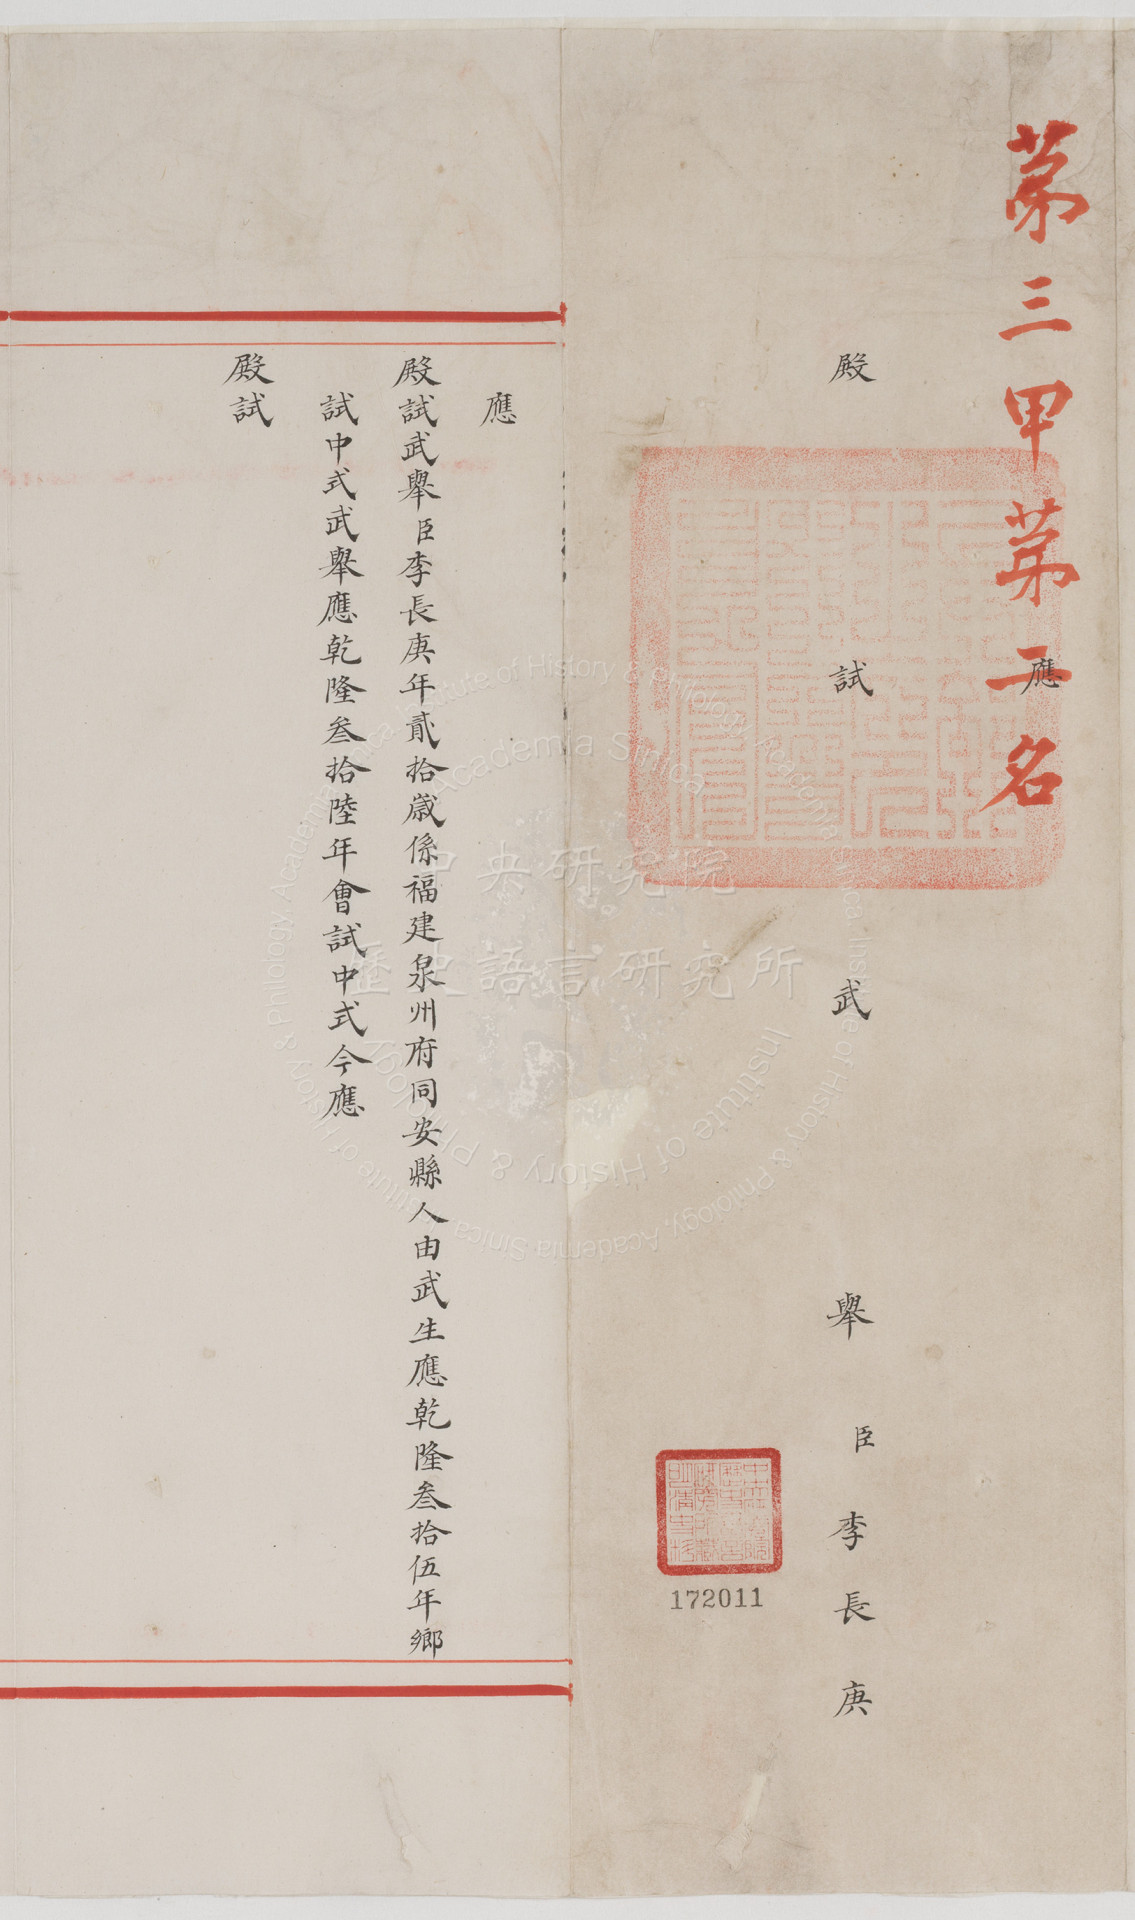 第三甲第二名
應
殿試武舉臣李長庚
172011
應
殿試武舉臣李長庚年貳拾歲係福建泉州府同安縣人由武生應乾隆叁拾伍年鄉
試中式武舉應乾隆叁拾陸年會試中式今應
殿試
中央研究院
歷史語言研究所
Institute of History & Philology, Academia Sinica